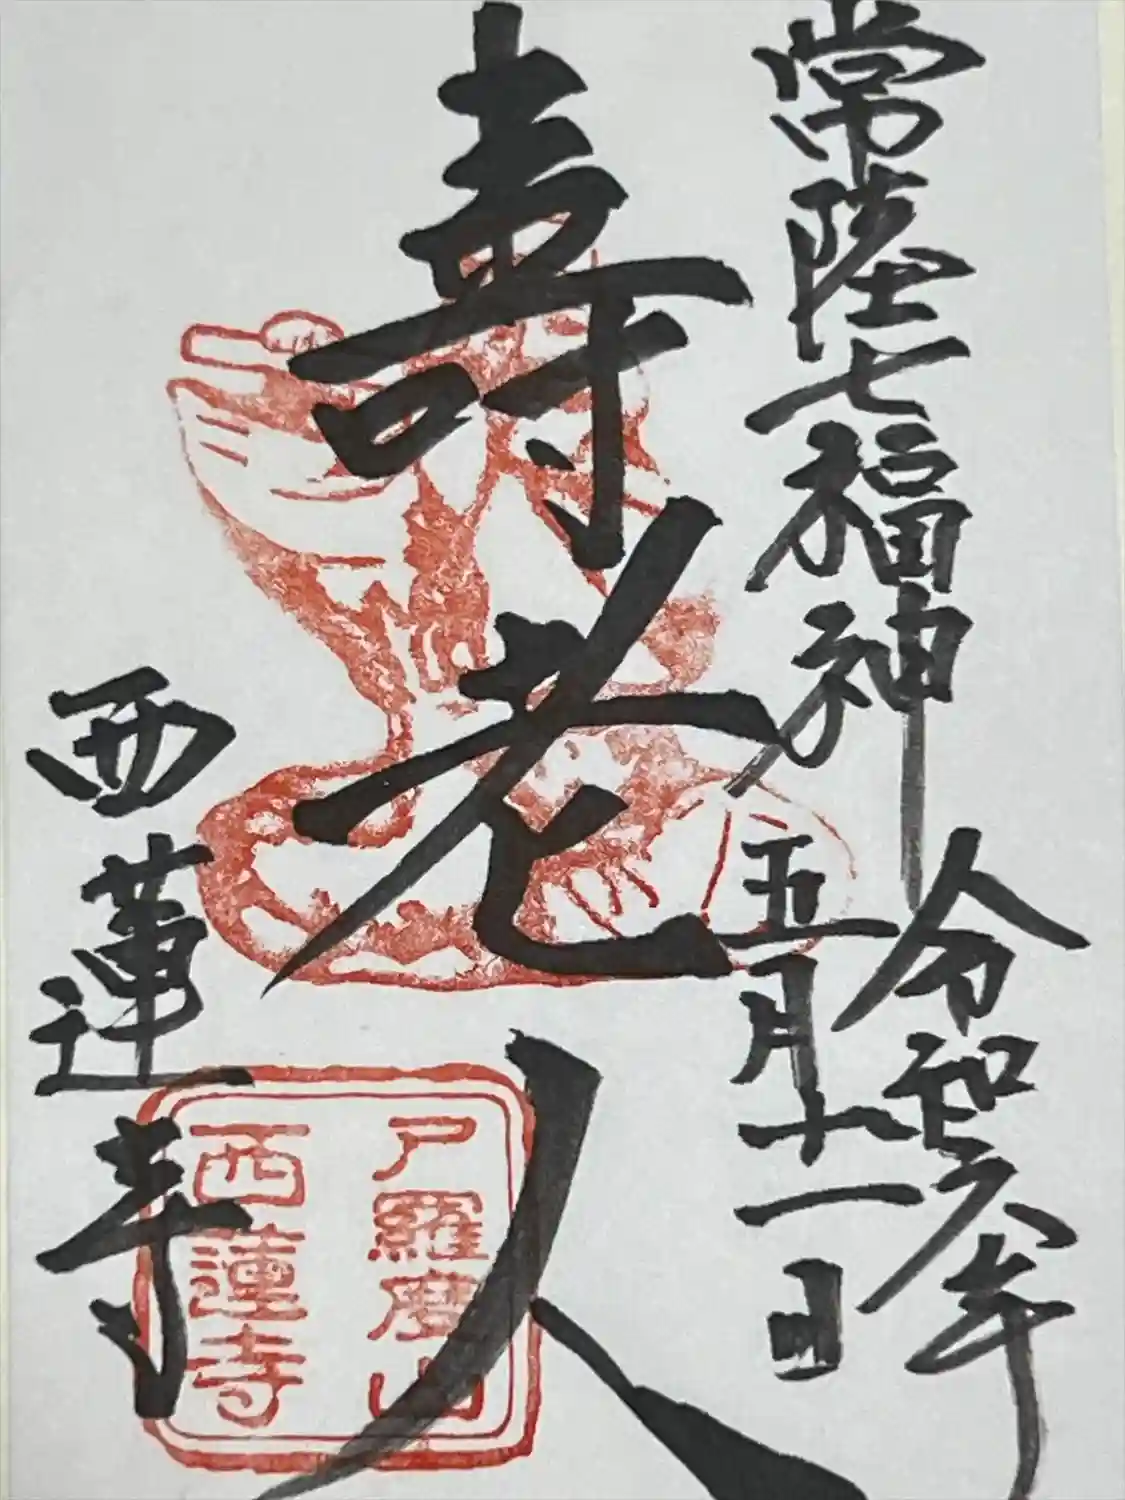 常陸七福神
令和六年
五月十一日
寿老人
西蓮寺
尸羅度山
西蓮寺